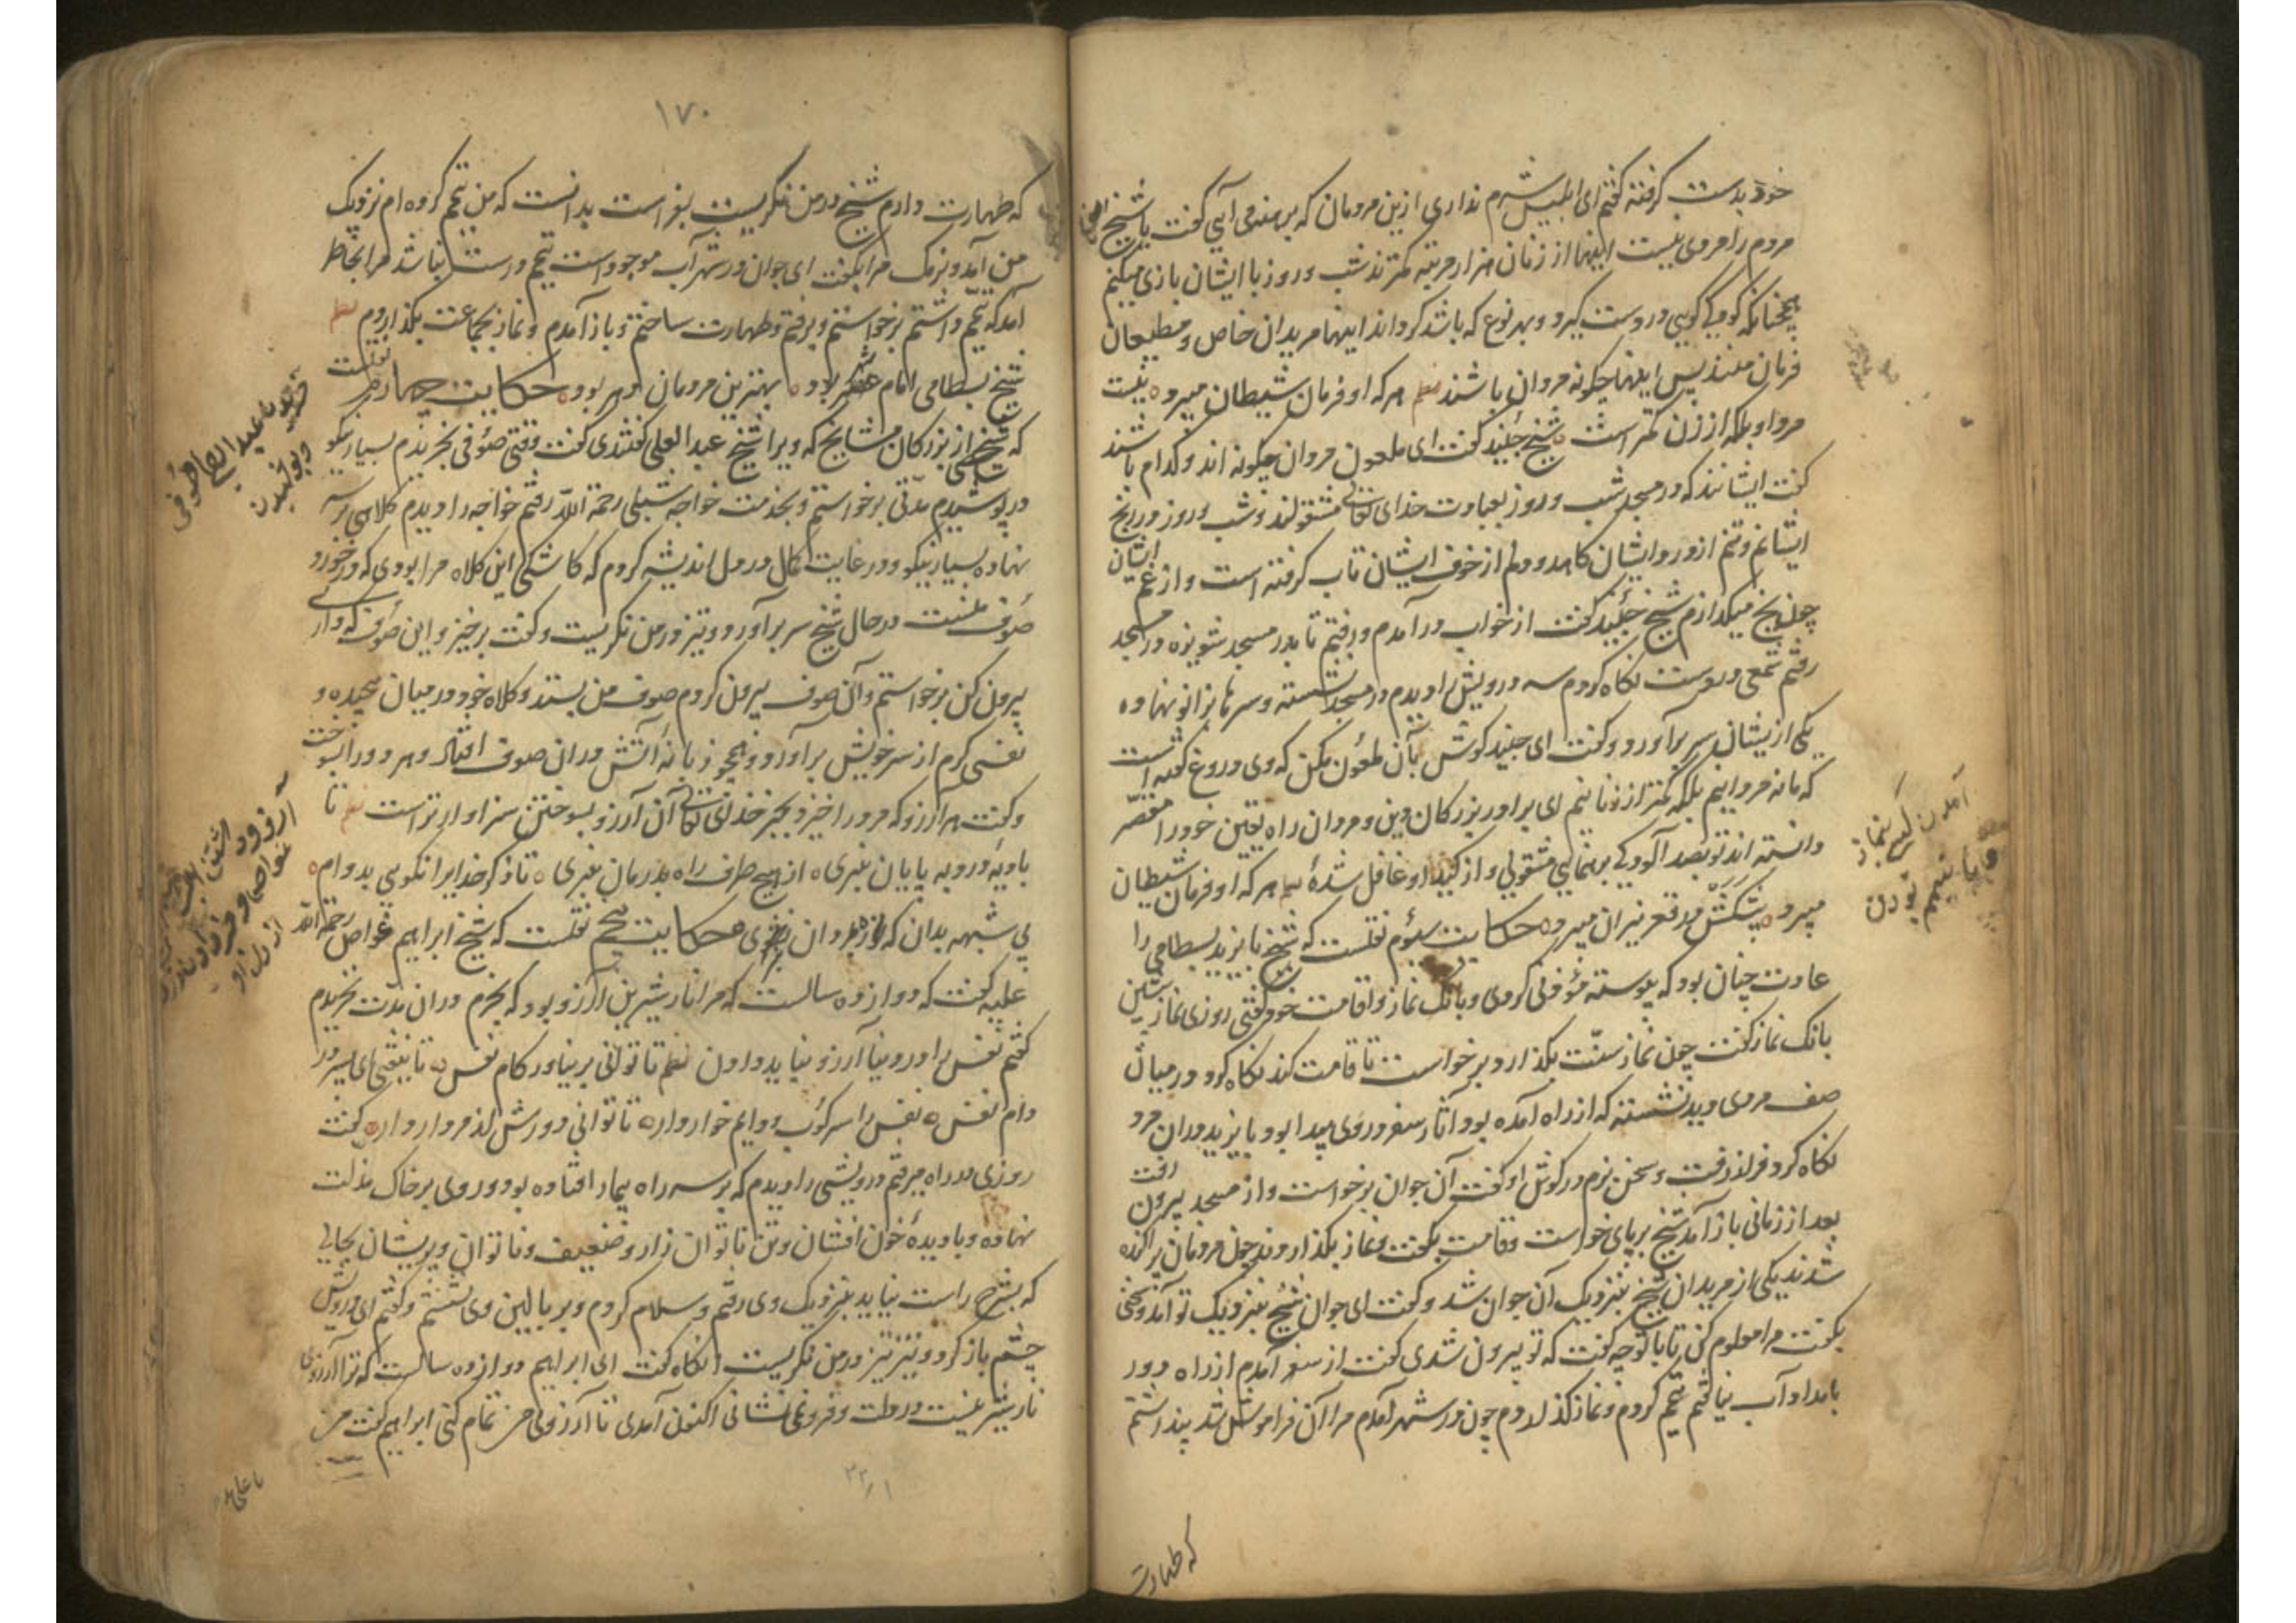 خود بدست گرفته گفتم ای ابلیس شرم نداری ازین مردمان که برهنه می آیی گفت یا شیخ
مردم را مردی نیست اینها از زنان هزار مرتبه کمترند شب و روز با ایشان بازی میکنم
همچنانکه کودکی گویی در دست گیرد و بهر نوع که باشد گرداند اینها مریدان خاص و مطیعان
فرمان منند پس اینها چگونه مردان باشند نظم هر که او فرمان شیطان میبرد نیست
مرد او بلکه از زن کمتر است شیخ جنید گفت ای ملعون مردان چگونه اند و کدام باشند
گفت ایشانند که در مسجد شب و روز بعبادت خدای تعالی مشغولند و شب و روز در رنج
ایشانم و تنم از درد ایشان کاهد و دلم از خوف ایشان تاب گرفته است و از غم ایشان
چون یخ میگدازم شیخ جنید گفت از خواب در آمدم و رفتم تا بدر مسجد شونیزه در مسجد
رفتم شمعی در دست نگاه کردم سه درویش را دیدم در مسجد نشسته و سرها بزانو نهاده
یکی از ایشان سر برآورد و گفت ای جنید گوش بآن ملعون مکن که وی دروغ گفته است
که ما نه مردانیم بلکه کمتر از زنانیم ای برادر بزرگان دین و مردان راه یقین خود را مقصر
دانسته اند تو بصد آلودگی برهنمایی مشغولی و از کید او غافل شدهٔ نظم هر که او فرمان شیطان
میبرد بیشکش در قعر نیران میبرد حکایت سیوم نقلست که شیخ بایزید بسطامی را
عادت چنان بود که پیوسته مؤذنی کردی و بانگ نماز و اقامت خود گفتی روزی نماز پیشین
بانگ نماز گفت چون نماز سنت بگذارد برخواست تا قامت کند نگاه کرد در میان
صف مردی دید نشسته که از راه آمده بود و آثار سفر در وی پیدا بود بایزید در آن مرد
نگاه کرد فراز رفت و سخن نرم در گوش او گفت آن جوان برخواست و از مسجد بیرون رفت
بعد از زمانی باز آمد شیخ بر پای خواست و قامت بگفت و نماز بگذاردند چون مردمان پراکنده
شدند یکی از مریدان شیخ بنزدیک آن جوان شد و گفت ای جوان شیخ بنزدیک تو آمد و سخنی
بگفت مرا معلوم کن تا با تو چه گفت که تو بیرون شدی گفت از سفر آمدم از راه دور
بامداد آب نیافتم تیمم کردم و نماز گذاردم چون در شهر آمدم مرا آن فراموش شد پنداشتم
که طهارت
آمدن کس بنماز
با تیمم بودن
۱۷۰
که طهارت دارم شیخ در من نگریست بفراست بدانست که من تیمم کرده ام نزدیک
من آمد و نرمک مرا بگفت ای جوان در شهر آب موجود است تیمم درست نباشد مرا بخاطر
آمد که تیمم داشتم برخواستم و برفتم و طهارت ساختم و باز آمدم و نماز بجماعت بگذاردم نظم
شیخ بسطامی امام شهر بود بهترین مردمان دهر بود حکایت چهارم نقلست
که شیخی از بزرگان مشایخ که ویرا شیخ عبد العلی گفتندی گفت وقتی صوفی بخریدم بسیار نیکو
در پوشیدم مدتی برخواستم و بخدمت خواجه شبلی رحمة الله رفتم خواجه را دیدم کلاهی بر سر
نهاده بسیار نیکو و در غایت کمال در دل اندیشه کردم که کاشکی این کلاه مرا بودی که در خورد
صوف منست در حال شیخ سر برآورد و تیز در من نگریست و گفت برخیز و این صوف که داری
بیرون کن برخواستم و آن صوف بیرون کردم صوف من بستد و کلاه خود در میان پیچیده و
نفسی گرم از سر خویش برآورد و همچو زبانهٔ آتش در آن صوف افتاد و هر دو را بسوخت
و گفت هر آرزو که مرد را خیزد بجز خدای تعالی آن آرزو بسوختن سزاوارتر است نظم تا
بادیهٔ درد به پایان نبری از هیچ طرف راه بدرمان نبری تا ذکر خدایرا نگویی بدوام
بی شبهه بدان که ره بمردان نبری حکایت پنجم نقلست که شیخ ابراهیم خواص رحمة الله
علیه گفت که دوازده سالست که مرا انار شیرین آرزو بود که بخرم در آن مدت نخریدم
گفتم نفس را در دنیا آرزو نباید دادن نظم تا توانی بر نیاور کام نفس تا نیفتی ای پسر در
دام نفس نفس را سرکوب و دایم خوار دار تا توانی دورش از مردار دار گفت
روزی در راه میرفتم درویشی را دیدم که بر سر راه بیمار افتاده بود و روی بر خاک مذلت
نهاده و با دیدهٔ خون افشان و تن ناتوان زار و ضعیف و ناتوان و پریشان بحالی
که بشرح راست نیاید بنزدیک وی رفتم و سلام کردم و بر بالین وی نشستم و گفتم ای درویش
چشم باز کرد و تیز تیز در من نگریست آنگاه گفت ای ابراهیم دوازده سالست که ترا آرزوی
نار شیرینست در دلت و فرو می نشانی اکنون آمدی تا آرزوی من تمام کنی ابراهیم گفت من